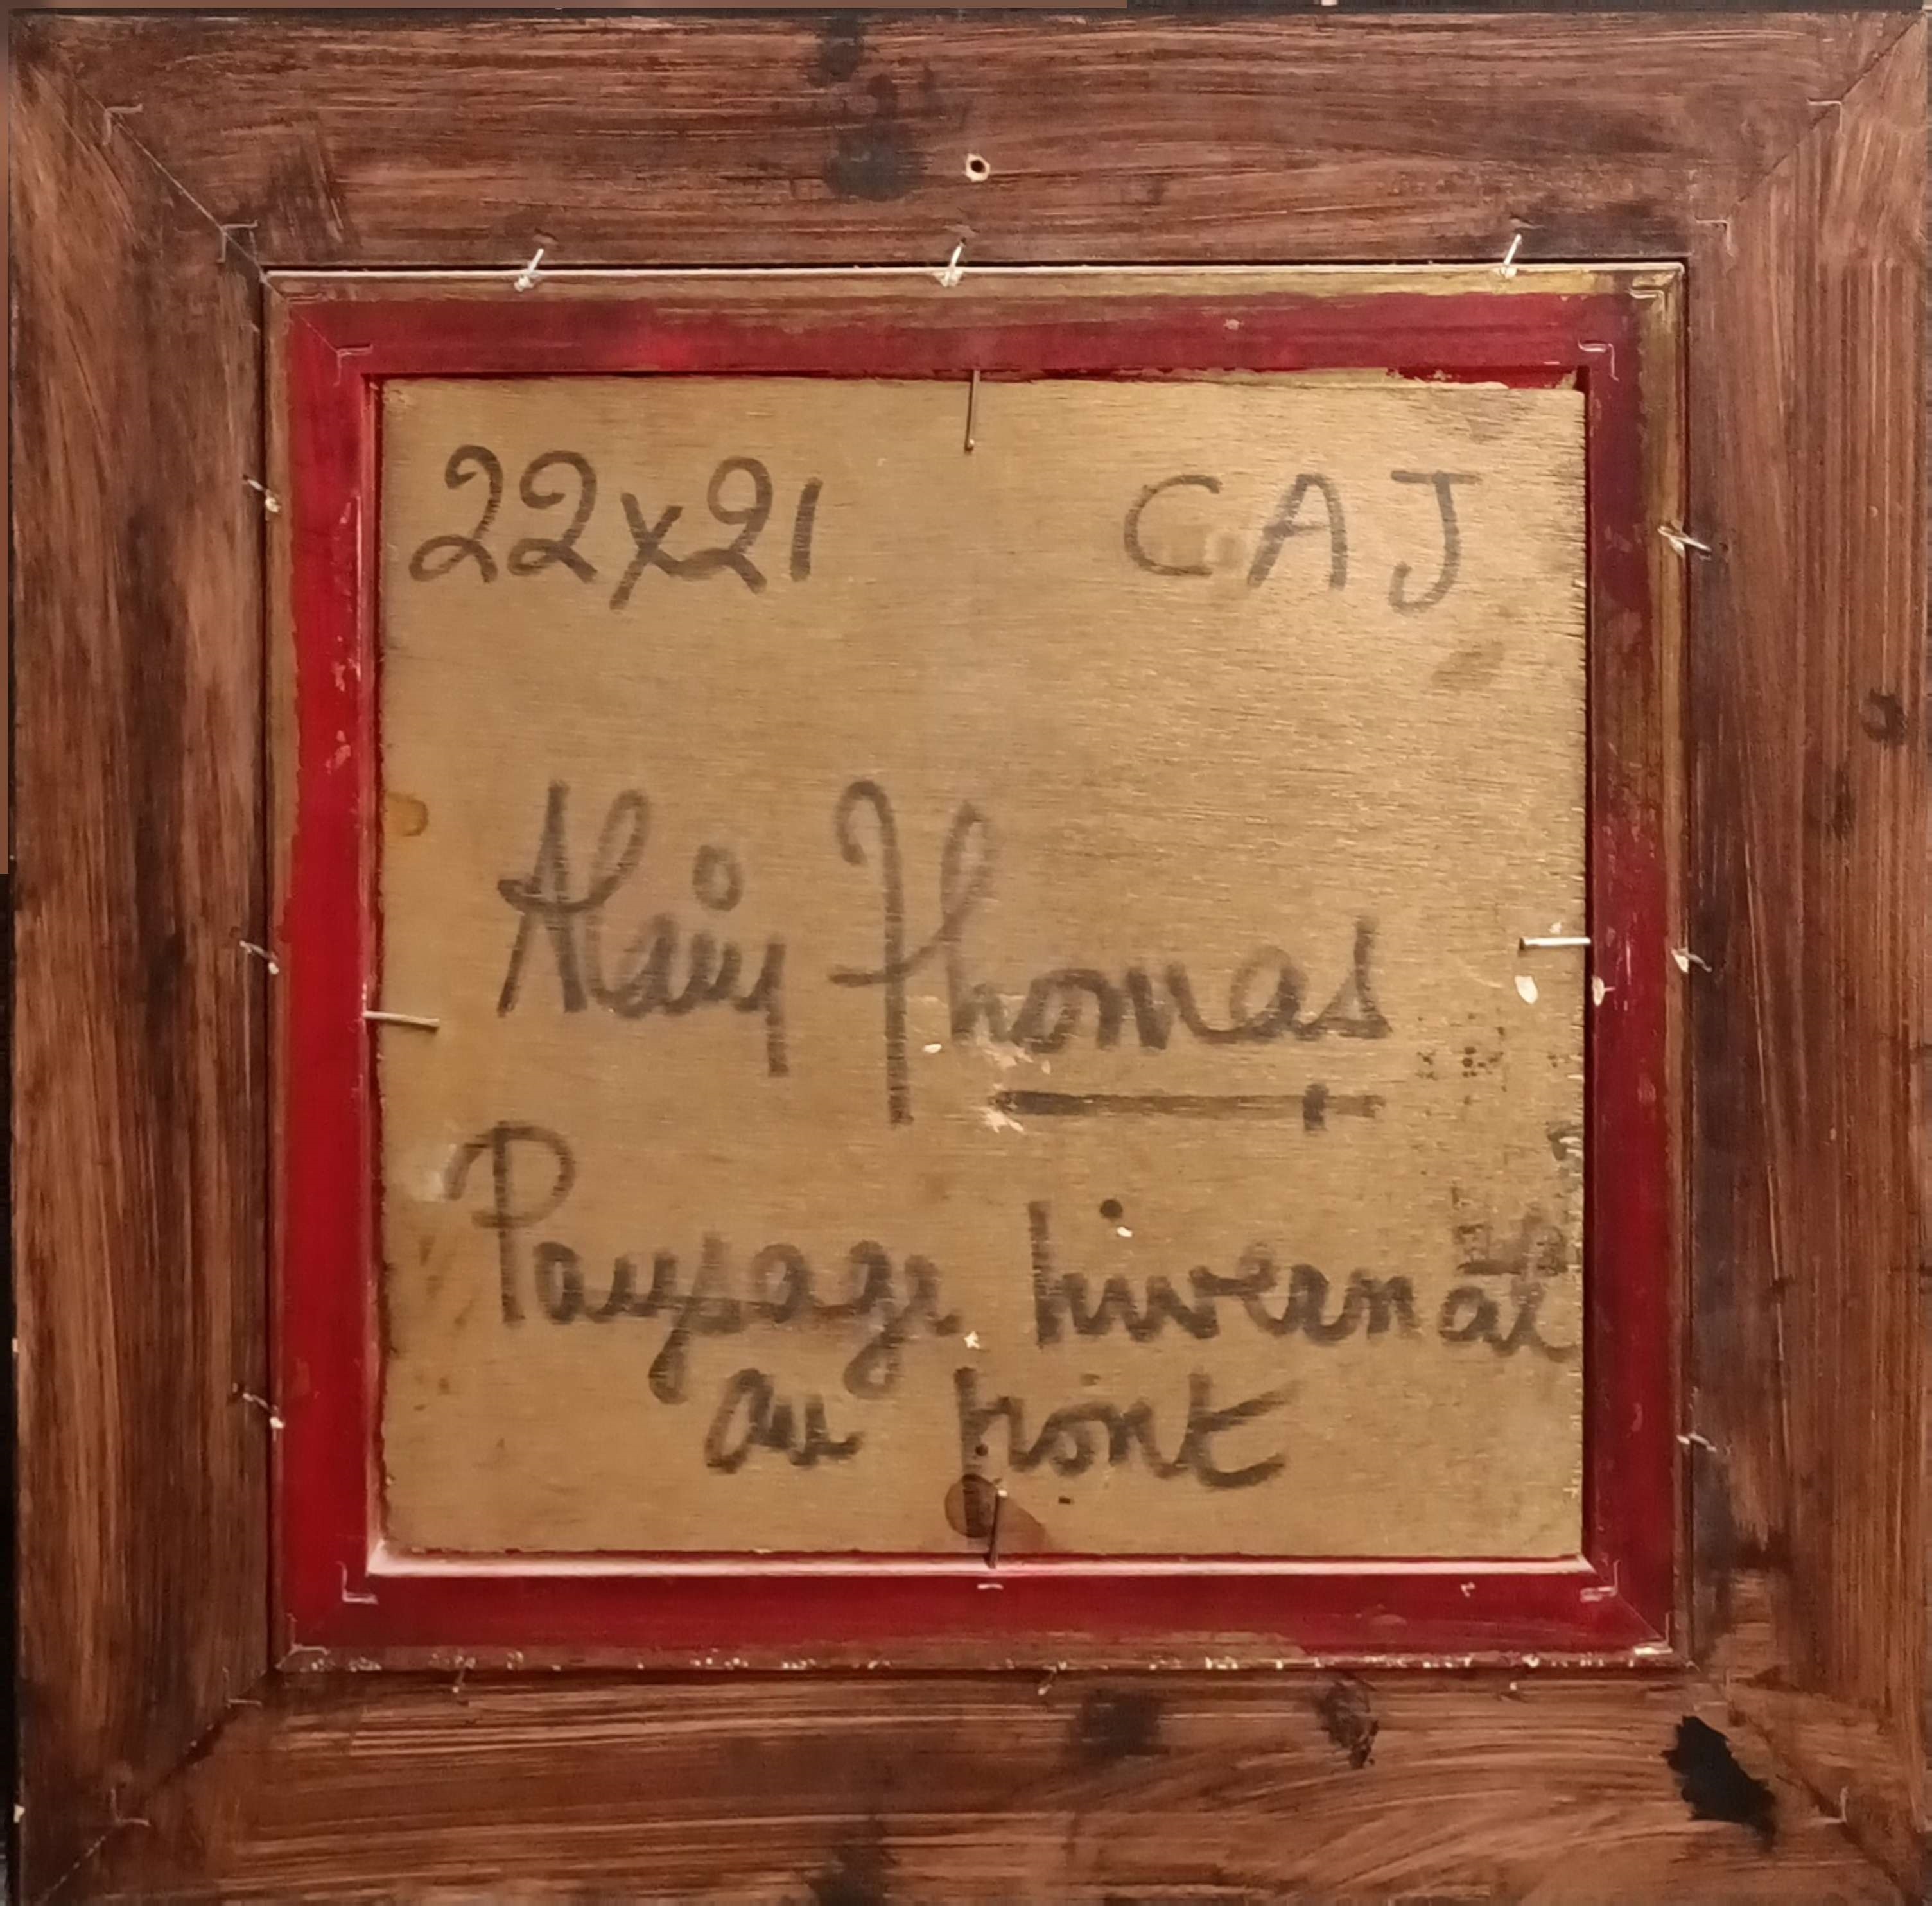 22x21 CAJ
Alain Thomas
Paysage hivernal
au pont